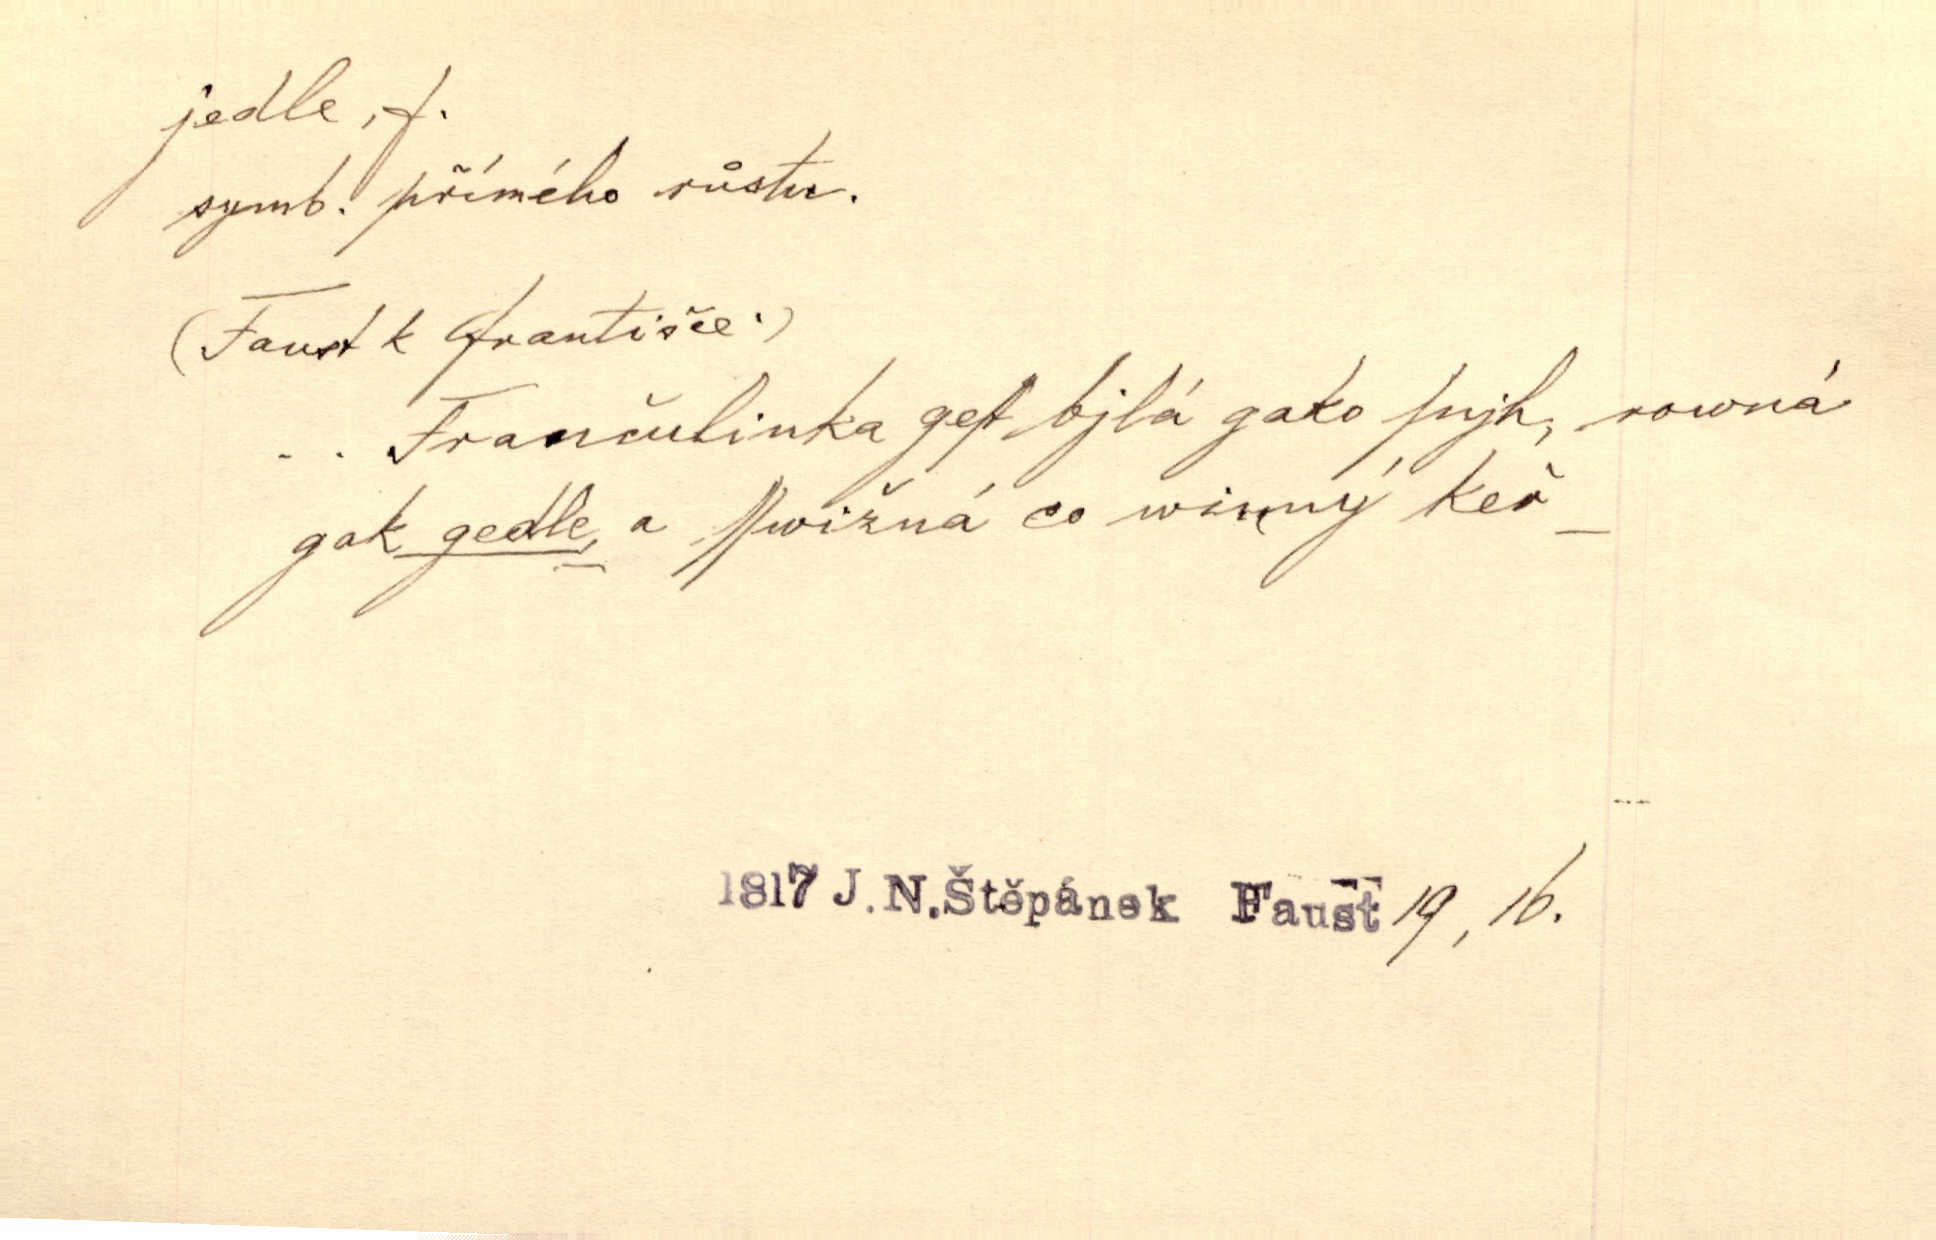 jedle, f.
symb. přímého růstu.
(Faust k Františce:)
. . Frančulinka geſt bjlá gako ſnjh, rowná
gak gedle, a ſſwižná co winný keř _
1817 J.N.Štěpánek Faust 19, 16.